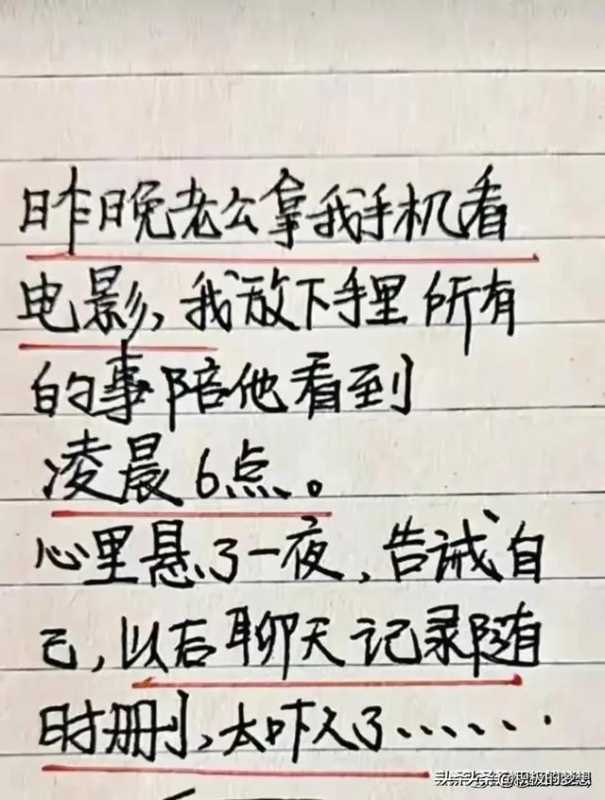 昨晚老公拿我手机看
电影,我放下手里所有
的事陪他看到
凌晨6点。
心里悬了一夜,告诫自
己,以后聊天记录随
时删,太吓人了......
头条 @积极的梦想